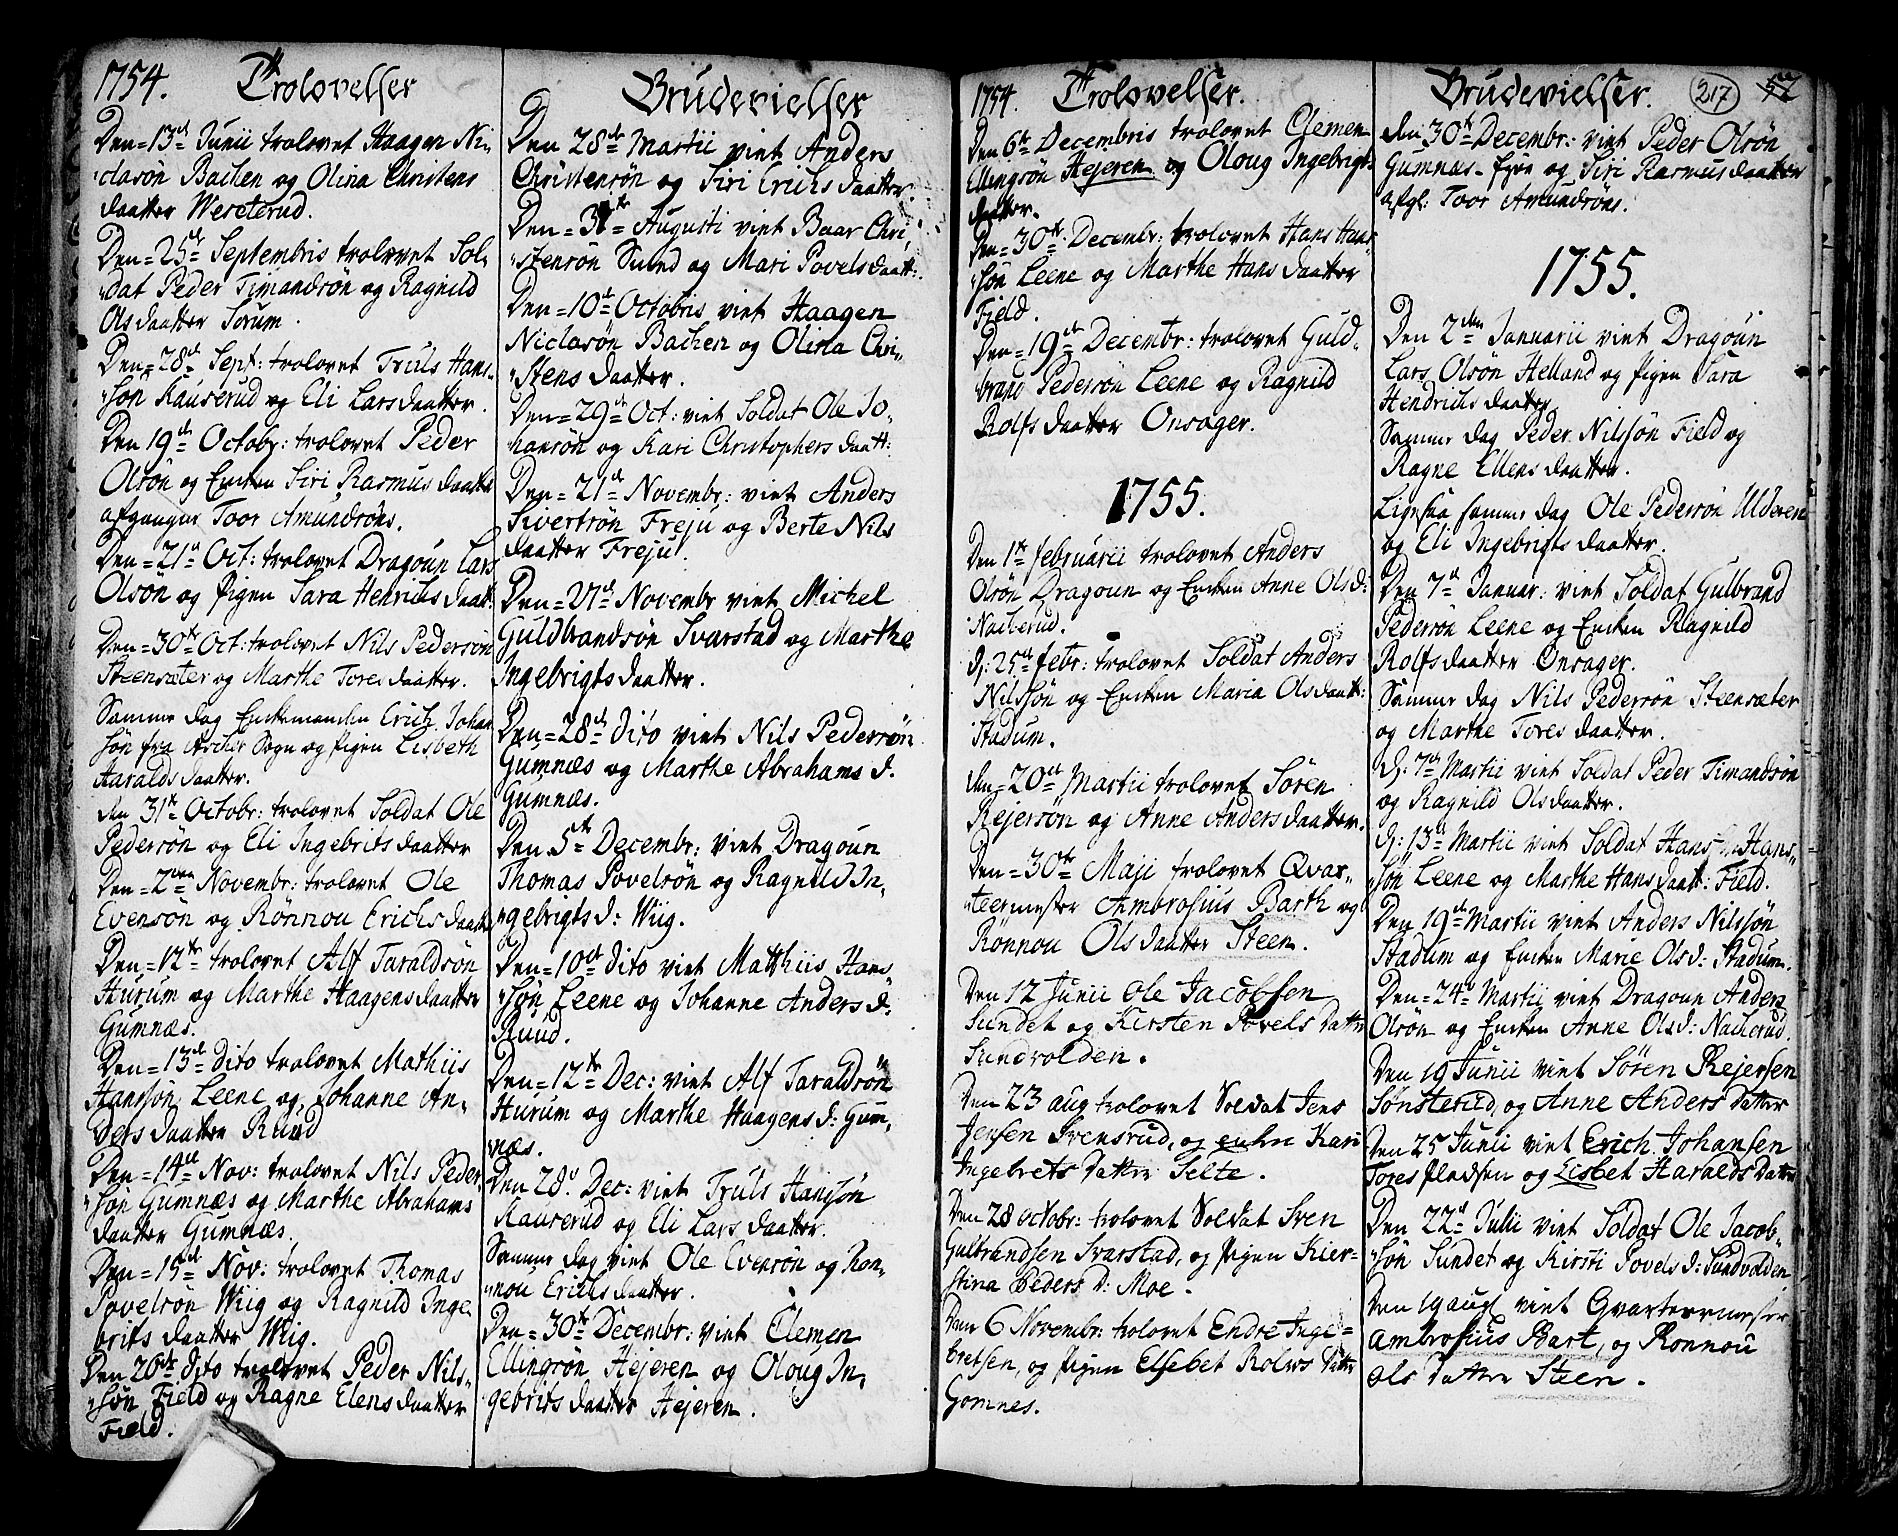 1754. Trolovelser
Den 13de Junii trolovet Haagen Ni-
clasön Bachen og Olina Christens
daatter Weseterud.
Den 25de Septembris trolovet Sol-
dat Peder Timandsön og Ragnild
Olsdaatter Sorum.
Den 28de Sept: trolovet Truls Hans-
sön Kauserud og Eli Larsdaatter.
Den 19de Octobr: trolovet Peder
Olsön og Encken Siri Rasmusdaatter
afgangne Toor Amundsöns.
Den 21de Oct: trolovet Dragoun Lars
Olsön og Pigen Sara Henrichsdaatt:
Den 30te Oct: trolovet Nils Pedersön
Steensæter og Marthe Toresdaatter.
Samme dag Enckemanden Erich Johan-
sön fra Ascher Sogn og Pigen Lisbeth
Haraldsdaatter.
den 31te Octobr: trolovet Soldat Ole
Pedersön og Eli Ingebritsdaatter
Den 2den Novembr: trolovet Ole
Evensön og Rönnou Erichsdaatter
Den 12te trolovet Alf Taraldsön
Hurum og Marthe Haagensdaatter
Gumnæs.
Den 13de dito trolovet Mathiis
Hanssön Leene og Johanne An-
dersdaatter Ruud
Den 14de Nov: trolovet Nils Peder-
sön Gumnæs og Marthe Abrahams
daatter Gumnæs.
Den 15de Nov: trolovet Thomas
Povelsön Wiig og Ragnild Inge-
britsdaatter Wiig.
Den 26de dito trolovet Peder Nils-
sön Field og Ragne Elensdaatter
Field.
Brudevielser
Den 28de Martii viet Anders
Christensön og Siri Erichsdaatter
Den 31te Augusti viet Baar Chri-
stensön Sund og Mari Povelsdaatt:
Den 10de Octobris viet Haagen
Niclasön Bachen og Olina Chri-
stensdaatter.
Den 29de Oct: viet Soldat Ole Jo-
hansön og Kari Christophersdaatt:
Den 21de Novembr: viet Anders
Sivertsön Freju og Berte Nils
daatter Freju.
Den 27de Novembr viet Michel
Guldbrandsön Svarstad og Marthe
Ingebrigtsdaatter.
Den 28de dito viet Nils Pedersön
Gumnæs og Marthe Abrahams d.
Gumnæs.
Den 5te Decembr: viet Dragoun
Thomas Povelsön og Ragnild In-
gebrigts d: Wiig.
Den 10de dito viet Matthiis Hans
sön Leene og Johanne Anders d:
Ruud.
Den 12te Dec: viet Alf Taraldsön
Hurum og Marthe Haagens d: Gum-
næs.
Den 28d. Dec: viet Truls Hanssön
Kauserud og Eli Larsdaatter.
Samme dag viet Ole Evensön og Rön-
nou Erichsdaatter.
Den 30te Decembr: viet Clemen
Ellingsön Hejeren og Oloug In-
gebritsdaatter Hejeren.
1754. Trolovelser.
Den 6te Decembris trolovet Clemen
Ellingsön Hejeren og Oloug Ingebrigts-
daatter.
Den 30te Decembr: trolovet Hans Hans
sön Leene og Marthe Hansdaatter
Field.
Den 19de Decembr: trolovet Guld-
brand Pedersön Leene og Ragnild
Rolfsdaatter Onsager.
1755.
Den 1te februarii trolovet Anders
Olsön Dragoun og Encken Anne Olsd:
Nacherud.
d: 25de febr: trolovet Soldat Anders
Nilssön og Encken Maria Olsdaatt:
Stadum.
den 20de Martii trolovet Sören
Rejersön og Anne Andersdaatter.
Den 30te Maji trolovet Qvar-
teermester Ambrosius Barth og
Rönnou Olsdaatter Steen.
Den 12 Junii Ole Jacobsen
Sundet og Kirsten Povels datter
Sundvolden.
Den 23 aug trolovet Soldat Jens
Jensen Svensrud, og enken Kari
Ingebrets datter Selte.
Den 28 octobr: trolovet Soldat Sven
Gulbrandsen Svarstad, og Pigen Kier-
stina Peders d: Moe.
Den 6 Novembr: trolovet Endre Inge-
bretsen, og Pigen Elsebet Rolvs datter
Gomnes.
Brudevielser. 217 57
den 30te Decembr: viet Peder Olsön
Gumnæs-Eje og Siri Rasmusdaatter
afgl: Toor Amundsöns.
1755.
Den 2den Januarii viet Dragoun
Lars Olsön Helland og Pigen Sara
Hendrichsdaatter
Samme dag Peder Nilssön Field og
Ragne Ellensdaatter.
Ligesaa samme dag Ole Pedersön Ulderen
og Eli Ingebrigtsdaatter.
Den 7de Januar: viet Soldat Gulbrand
Pedersön Leene og Encken Ragnild
Rolfsdaatter Onsager.
Samme dag Nils Pedersön Steensæter
og Marthe Toresdaatter.
d: 7de Martii viet Soldat Peder Timandsön
og Ragnild Olsdaatter.
d: 13de Martii viet Soldat Hans Hans-
sön Leene og Marthe Hansdaatt: Field.
Den 19de Martii viet Anders Nilssön
Stadum og Encken Marie Olsd: Stadum.
Den 24de Martii viet Dragoun Anders
Olsön og Encken Anne Olsd: Nacherud.
Den 19 Junii viet Sören Rejersen
Sönsterud, og Anne Anders datter
Den 25 Junii viet Erich Johansen
Tores pladsen og Lisbet Haralds datter
Den 22de Julii viet Soldat Ole Jacob-
sön Sundet og Kirsti Povels d: Sundvolden
Den 19 augl viet Qvarteermester
Ambrosius Bart, og Ronnou
Ols datter Steen.